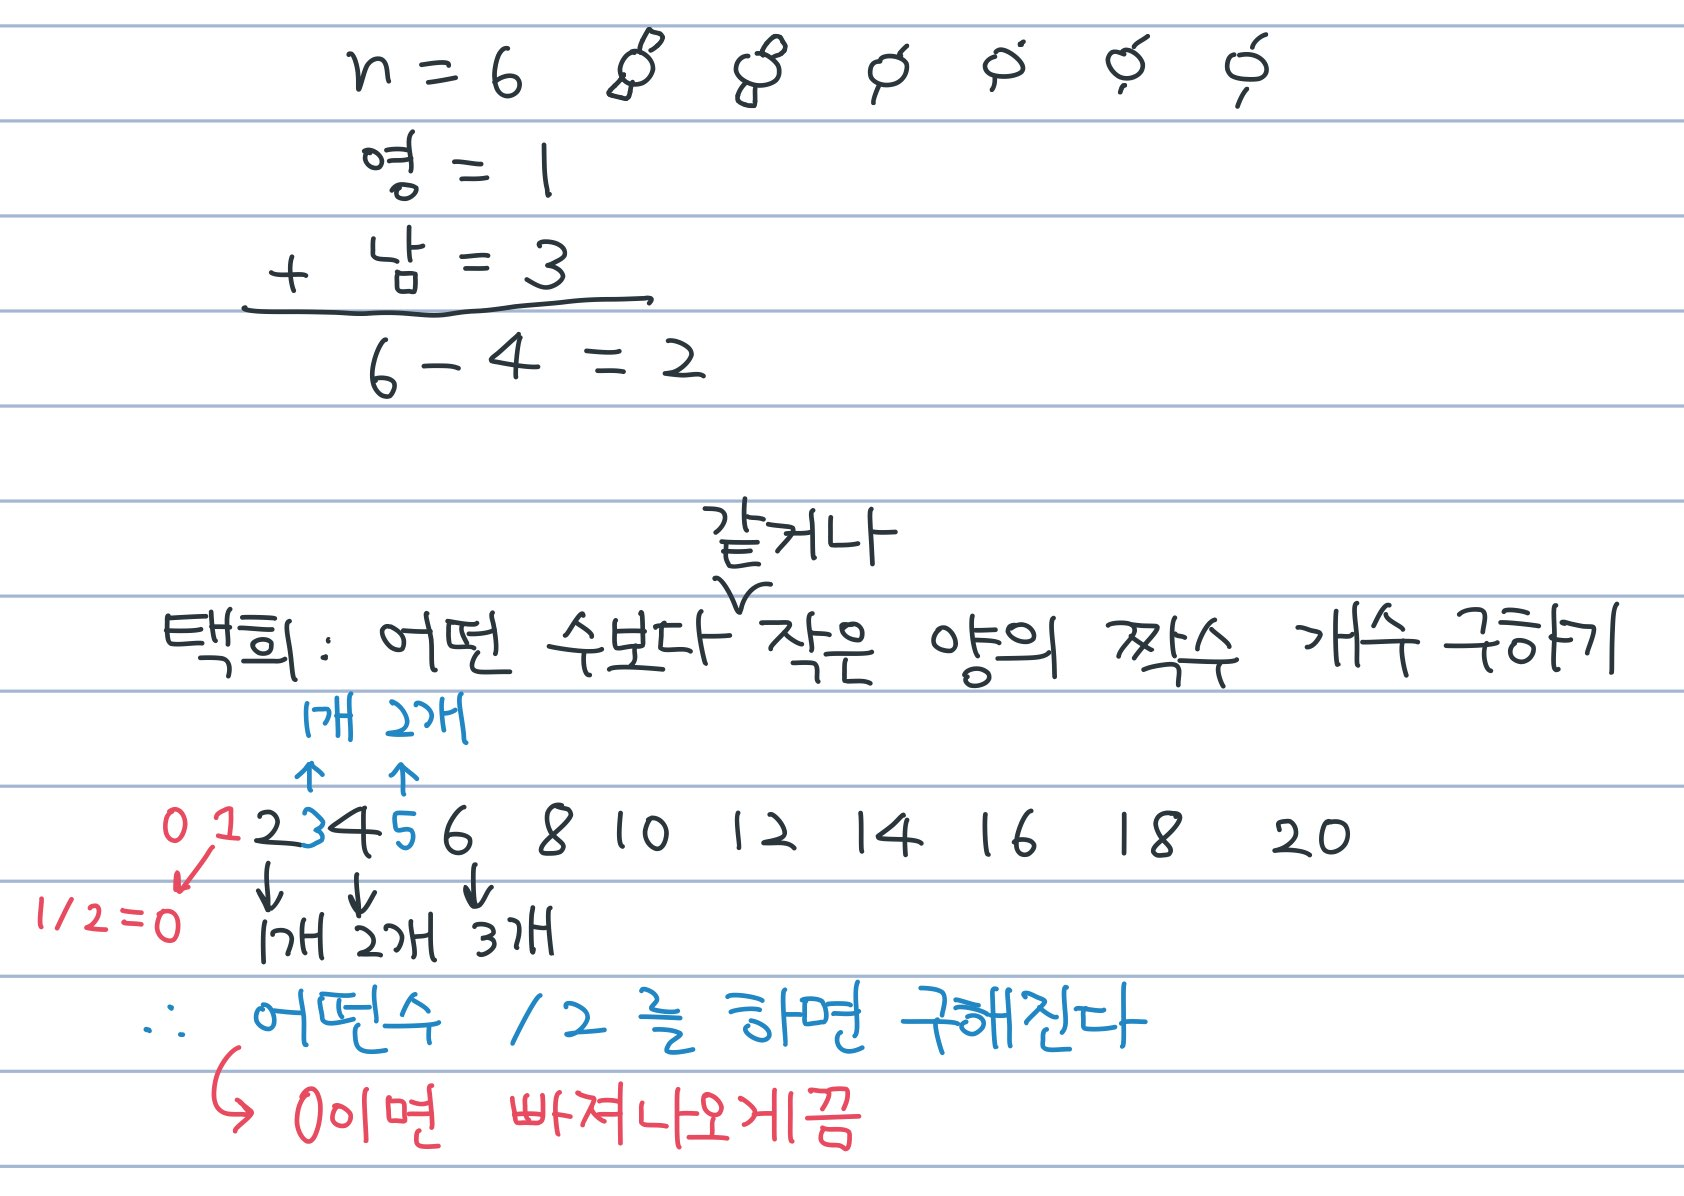 n = 6
영 = 1
+ 남 = 3
6 - 4 = 2
같거나
택희: 어떤 수보다 ∨ 작은 양의 짝수 개수 구하기
1개 2개
↑ ↑
0 1 2 3 4 5 6 8 10 12 14 16 18 20
↓ ↓ ↓
1/2=0 1개 2개 3개
∴ 어떤수 /2 를 하면 구해진다
0이면 빠져나오게끔